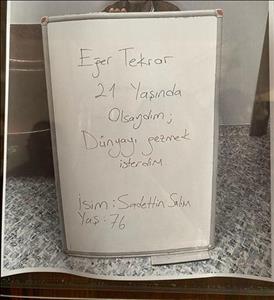 Eğer Tekrar
21 Yaşında
Olsaydım;
Dünyayı gezmek
isterdim
İsim: Sadettin Salim
Yaş: 76